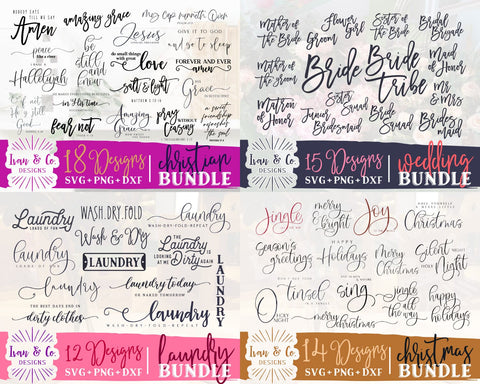 NOBODY EATS
TILL WE SAY
Amen
amazing grace
my cup runneth Over
Jesus
GIVE IT TO GOD
and go to sleep
peace
like a river
be
still
and
know
do small things
with great
love
FOREVER AND EVER
amen
Hallelujah
salt & light
MATTHEW 5:13-16
Grace
in His time
fear not
Amazing
Grace
pray
WITHOUT
CEASING
Ivan & Co.
DESIGNS
18 Designs
SVG + PNG + DXF
christian
BUNDLE
Mother of
the Bride
Flower
Girl
Groom
Sister
of the
Bride
Bridal
Brigade
Mother of
the groom
Bride
Bride
tribe
Maid of
Honor
Mr &
Mrs
Matron
of Honor
Junior
Bridesmaid
Sister
Squad
Bride
Squad
Brides
maid
Ivan & Co.
DESIGNS
15 Designs
SVG + PNG + DXF
wedding
BUNDLE
Laundry
LOADS OF FUN
WASH.DRY.FOLD
Wash & Dry
laundry
WASH-DRY-FOLD-REPEAT
laundry
LOADS OF FUN
LAUNDRY
THE
Laundry
IS
LOOKING
AT ME
Dirty
AGAIN
LAUNDRY
laundry
laundry today
OR NAKED TOMORROW
THE BEST DAYS END IN
dirty clothes
laundry
WASH-DRY-FOLD-REPEAT
Ivan & Co.
DESIGNS
12 Designs
SVG + PNG + DXF
laundry
BUNDLE
Jingle
merry
& bright
Joy
HAVE YOURSELF
A MERRY LITTLE
Christmas
Season's
greetings
HAPPY
Holidays
Merry
Christmas
SILENT
NIGHT
Holy
Night
O
HOLY NIGHT
tinsel
merry
christmas
sing
jingle
all the
way
happy
holidays
Ivan & Co.
DESIGNS
14 Designs
SVG + PNG + DXF
christmas
BUNDLE